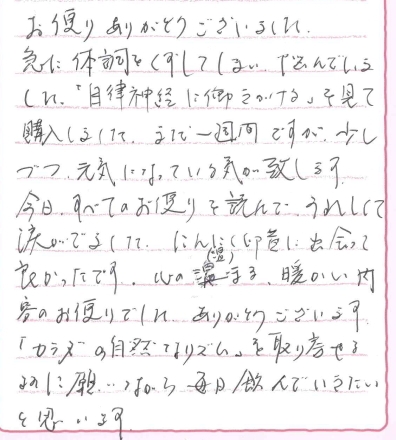 お便りありがとうございました。
急に体調をくずしてしまい、悩んでいま
した。「自律神経に御きかける」を見て
購入しました。まだ一週間ですが、少し
づつ、元気になっている気が致します。
今日、すべてのお便りを読んで、うれしくて
涙がでました。にんにく卵黄に出会って
良かったです。心の温まる、暖かい内
容のお便りでした。ありがとうございます。
「カラダの自然なリズム」を取り寄せる
ように願いながら毎日飲んでいきたい
と思います。